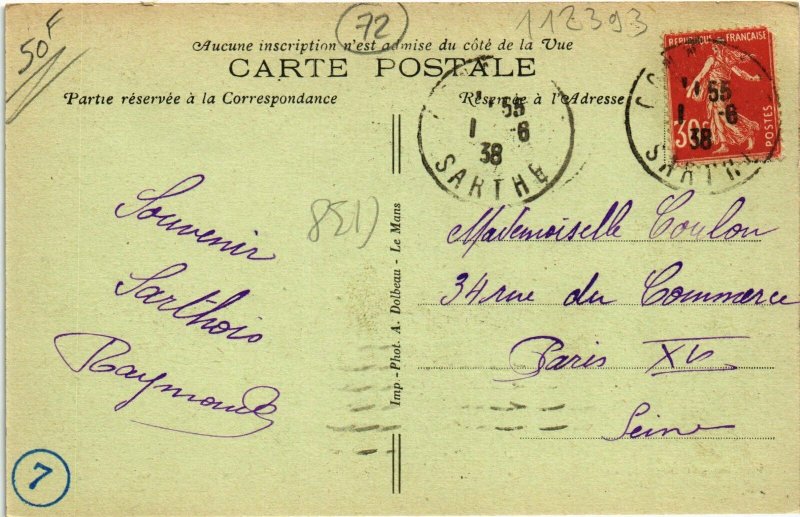 50F
72
112393
Aucune inscription n'est admise du côté de la Vue
CARTE POSTALE
Partie réservée à la Correspondance
Réservée à l'Adresse
55
1 -6
38
SARTHE
RÉPUBLIQUE FRANÇAISE
30c
POSTES
55
1 -6
38
SARTHE
Souvenir
Sarthois
Raymonde
(138
Imp-Phot. A. Dolbeau - Le Mans
Mademoiselle Coulon
34 rue du Commerce
Paris XV
Seine
7